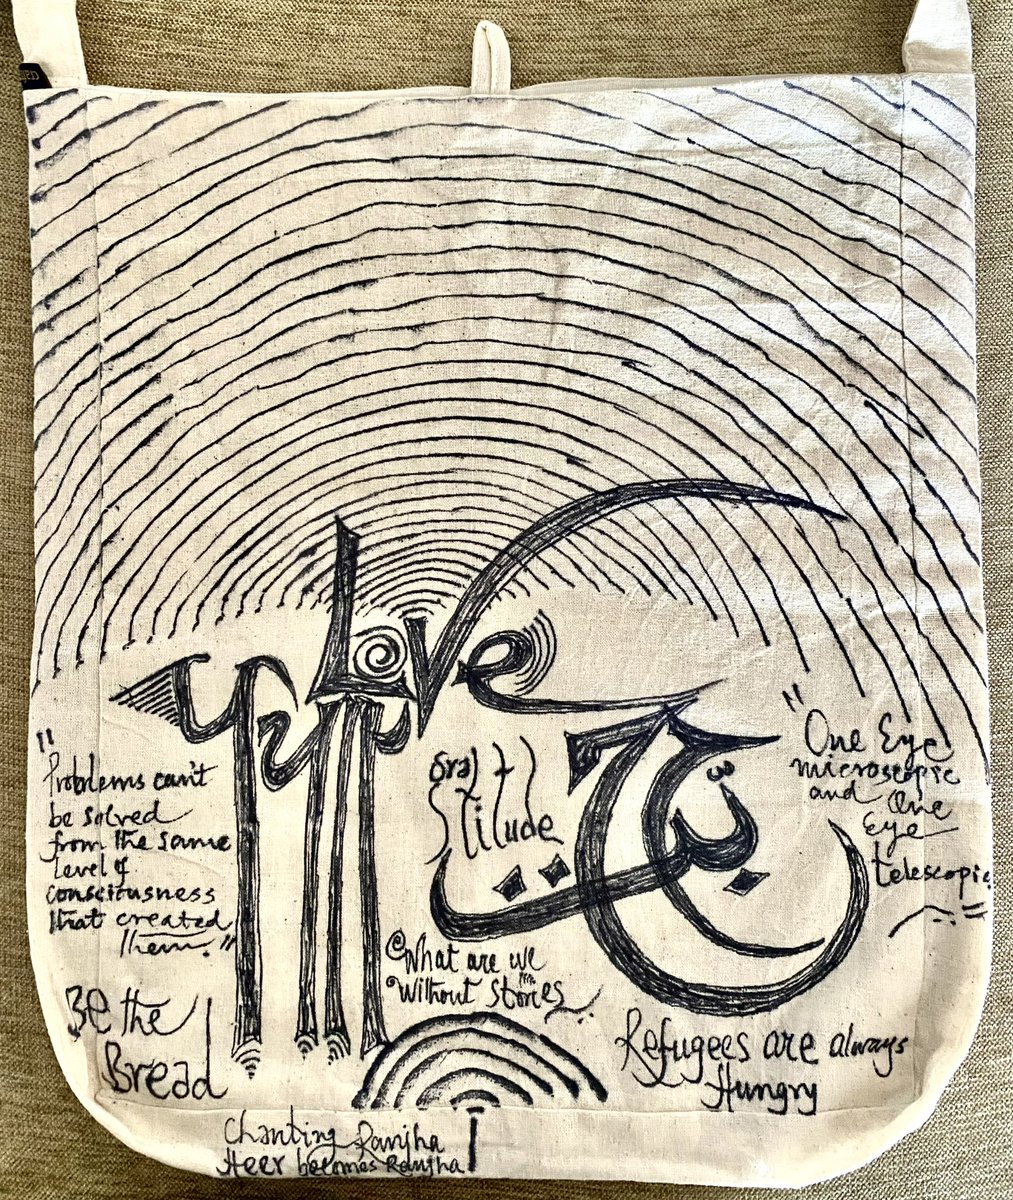 Love
"Problems can't
be solved
from the same
level of
consciousness
that created
them."
Gra
titude
"One Eye
microscopic
and One
Eye
telescopic
What are we
without stories
Be the
Bread
Refugees are always
Hungry
Chanting Ranjha
Heer becomes Ranjha